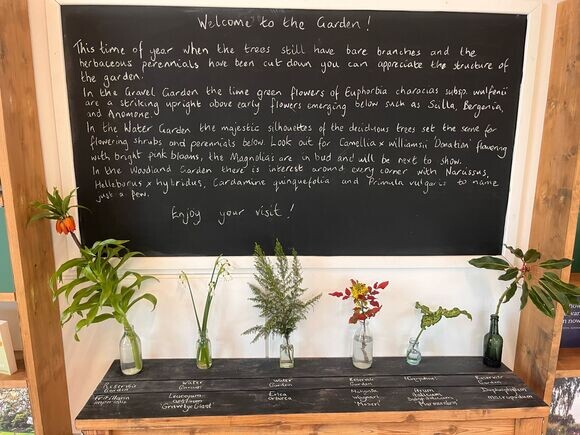 Welcome to the Garden!
This time of year when the trees still have bare branches and the
herbaceous perennials have been cut down you can appreciate the structure of
the garden!
In the Gravel Garden the lime green flowers of Euphorbia characias subsp. wulfenii
are a striking upright above early flowers emerging below such as Scilla, Bergenia,
and Anemone.
In the Water Garden the majestic silhouettes of the deciduous trees set the scene for
flowering shrubs and perennials below. Look out for Camellia x williamsii 'Donation' flowering
with bright pink blooms, the Magnolias are in bud and will be next to show.
In the Woodland Garden there is interest around every corner with Narcissus,
Helleborus x hybridus, Cardamine quinquefolia and Primula vulgaris to name
just a few.
Enjoy your visit!
Reservoir
Garden
Fritillaria
imperialis
Water
Garden
Leucojum
aestivum
'Gravetye Giant'
Water
Garden
Erica
arborea
Reservoir
Garden
Mahonia
'Moseri'
Arum
italicum
'Marmoratum'
Reservoir
Garden
Daphniphyllum
macropodum